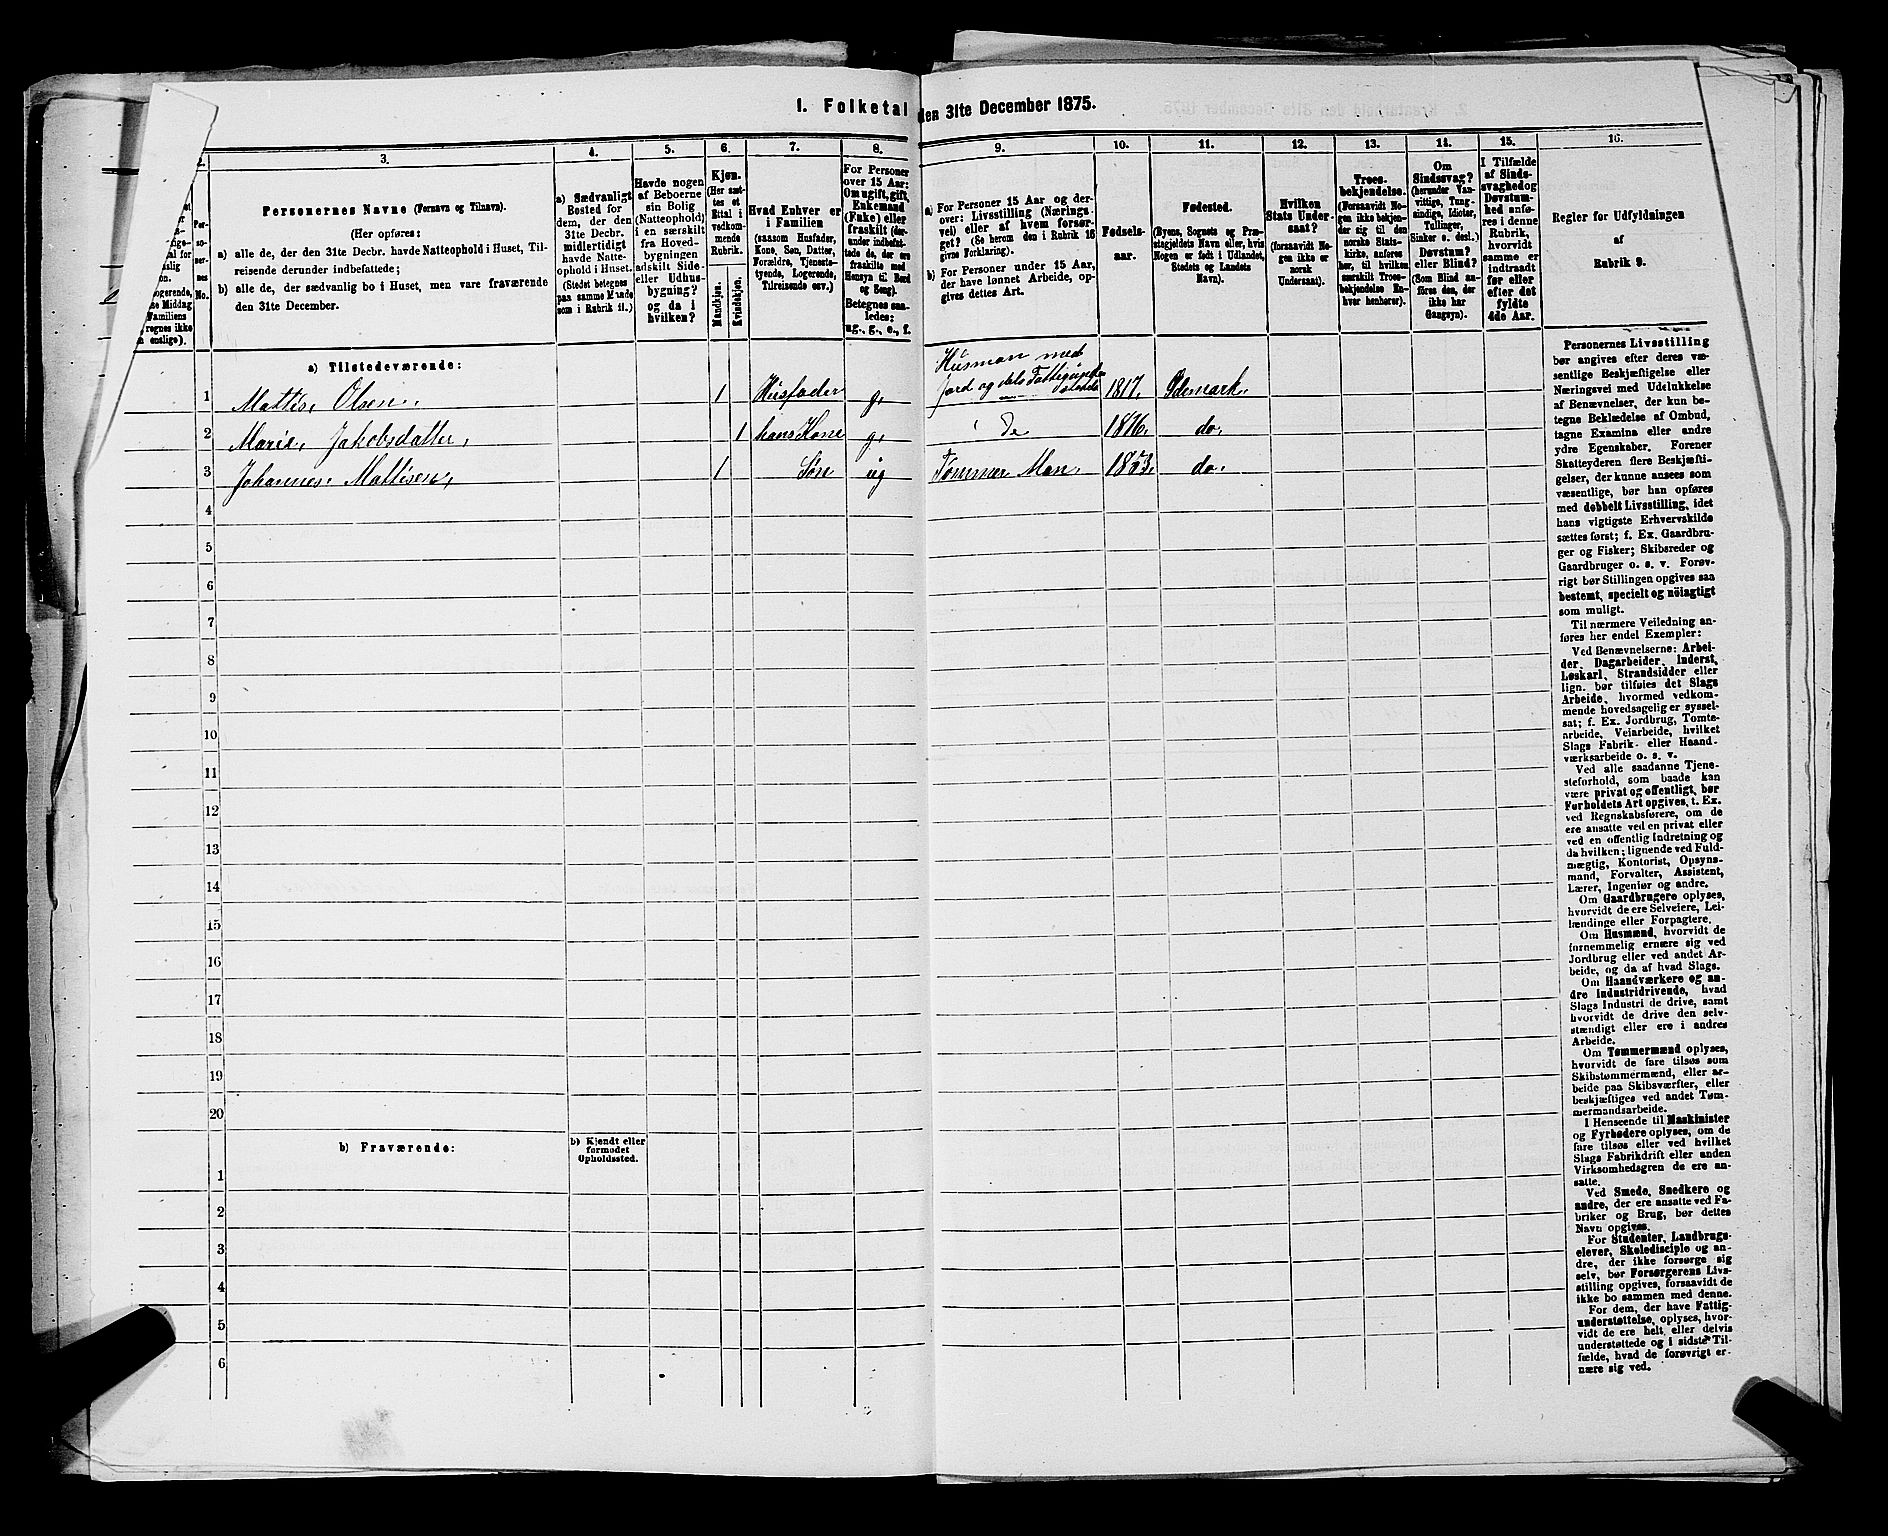 1. Folketal den 31te December 1875.
3.
4.
5.
6.
7.
8.
9.
10.
11.
12.
13.
14.
15.
16.
Per-
so-
ner-
nes
No.
Personernes Navne (Fornavn og Tilnavn).
(Her opføres:
a) alle de, der den 31te Decbr. havde Natteophold i Huset, Til-
reisende derunder indbefattede;
b) alle de, der sædvanlig bo i Huset, men vare fraværende
den 31te December.
a) Sædvanligt
Bosted for
dem, der den
31te Decbr.
midlertidigt
havde Natte-
ophold i Huset.
(Stedet betegnes
paa samme Maade
som i Rubrik 11.)
Havde nogen
af Beboerne
sin Bolig
(Natteophold)
i en særskilt
fra Hoved-
bygningen
adskilt Side-
eller Udhus-
bygning?
og da i
hvilken?
Kjøn.
(Her sæt-
tes et
Ettal i
vedkom-
mende
Rubrik.
Mandkjøn.
Kvindekjøn.
Hvad Enhver er
i Familien
(saasom Husfader,
Kone, Søn, Datter,
Forældre, Tjeneste-
tyende, Logerende,
Tilreisende osv.)
For Personer
over 15 Aar:
Om ugift, gift,
Enkemand
(Enke) eller
fraskilt (der-
under indbefat-
tede de, der ere
fraskilte med
Hensyn til Bord
og Seng).
Betegnes saa-
ledes:
ug., g., e., f.
a) For Personer 15 Aar og der-
over: Livsstilling (Nærings-
vei) eller af hvem forsør-
get? (Se herom den i Rubrik 16
givne Forklaring).
b) For Personer under 15 Aar,
der have lønnet Arbeide, op-
gives dettes Art.
Fødsels-
aar.
Fødested.
(Byens, Sognets og Præ-
stegjeldets Navn eller, hvis
Nogen er født i Udlandet,
Stedets og Landets
Navn).
Hvilken
Stats Under-
saat?
(forsaavidt No-
gen ikke er
norsk
Undersaat).
Troes-
bekjendelse.
(Forsaavidt No-
gen ikke bekjen-
der sig til den
norske Stats-
kirke, anføres
her, til hvilken
særskilt Troes-
bekjendelse En-
hver henhører).
Om
Sindssvag?
(herunder Van-
vittige, Tung-
sindige, Idioter,
Tullinger,
Sinker o. desl.)
Døvstum?
eller Blind?
(Som Blind an-
føres den, der
ikke har
Gangsyn).
I Tilfælde
af Sinds-
svaghed og
Døvstum-
hed anfø-
res i denne
Rubrik,
hvorvidt
samme er
indtraadt
før eller
efter det
fyldte
4de Aar.
Regler for Udfyldningen
af
Rubrik 9.
a) Tilstedeværende:
1 Mattis, Olsen, 1 Husfader g, Husman med Jord og dels 1817, Ødemark,
2 Marie, Jakobsdatter, 1 hans Kone g, 1816, do,
3 Johannes, Mattisen, 1 Søn ug Tømmer Man, 1853, do.
4
5
6
7
8
9
10
11
12
13
14
15
16
17
18
19
20
b) Fraværende:
b) Kjendt eller
formodet
Opholdssted.
1
2
3
4
5
6
Personernes Livsstilling
bør angives efter deres væ-
sentlige Beskjæftigelse eller
Næringsvei med Udelukkelse
af Benævnelser, der kun be-
tegne Beklædelse af Ombud,
tagne Examina eller andre
ydre Egenskaber. Forener
Skatteyderen flere Beskjæfti-
gelser, der kunne ansees som
væsentlige, bør han opføres
med dobbelt Livsstilling, idet
hans vigtigste Erhvervskilde
sættes først; f. Ex. Gaardbru-
ger og Fisker; Skibsreder og
Gaardbruger o. s. v. Forøv-
rigt bør Stillingen opgives saa
bestemt, specielt og nöiagtigt
som muligt.
Til nærmere Veiledning an-
føres her endel Exempler:
Ved Benævnelserne: Arbei-
der, Dagarbeider, Inderst,
Løskarl, Strandsidder eller
lign. bør tilføies det Slags
Arbeide, hvormed vedkom-
mende hovedsagelig er syssel-
sat; f. Ex. Jordbrug, Tomte-
arbeide, Veiarbeide, hvilket
Slags Fabrik- eller Haand-
værksarbeide o. s. v.
Ved alle saadanne Tjene-
steforhold, som baade kan
være privat og offentligt, bør
Forholdets Art opgives, t. Ex.
ved Regnskabsførere, om de
ere ansatte ved en privat eller
ved en offentlig Indretning og
da hvilken; lignende ved Fuld-
mægtig, Kontorist, Opsyns-
mand, Forvalter, Assistent,
Lærer, Ingeniør og andre.
Om Gaardbrugere oplyses,
hvorvidt de ere Selveiere, Lei-
lændinge eller Forpagtere.
Om Husmænd, hvorvidt de
fornemmelig ernære sig ved
Jordbrug eller ved andet Ar-
beide, og da af hvad Slags.
Om Haandværkere og an-
dre Industridrivende, hvad
Slags Industri de drive, samt
hvorvidt de drive den selv-
stændigt eller ere i andres
Arbeide.
Om Tømmermænd oplyses,
hvorvidt de fare tilsøs som
Skibstømmermænd, eller ar-
beide paa Skibsværfter, eller
beskjæftiges ved andet Tøm-
mermandsarbeide.
I Henseende til Maskinister
og Fyrbødere oplyses, om de
fare tilsøs eller ved hvilket
Slags Fabrikdrift eller anden
Virksomhedsgren de ere an-
satte.
Ved Smede, Snedkere og
andre, der ere ansatte ved Fa-
briker og Brug, bør dettes
Navn opgives.
For Studenter, Landbrugs-
elever, Skoledisciple og an-
dre, der ikke forsørge sig
selv, bør Forsørgerens Livs-
stilling opgives, forsaavidt de
ikke bo sammen med denne.
For dem, der have Fattig-
understøttelse, oplyses, hvor-
vidt de ere helt eller delvis
understøttede og i sidste Til-
fælde, hvad de forøvrigt er-
nære sig ved.